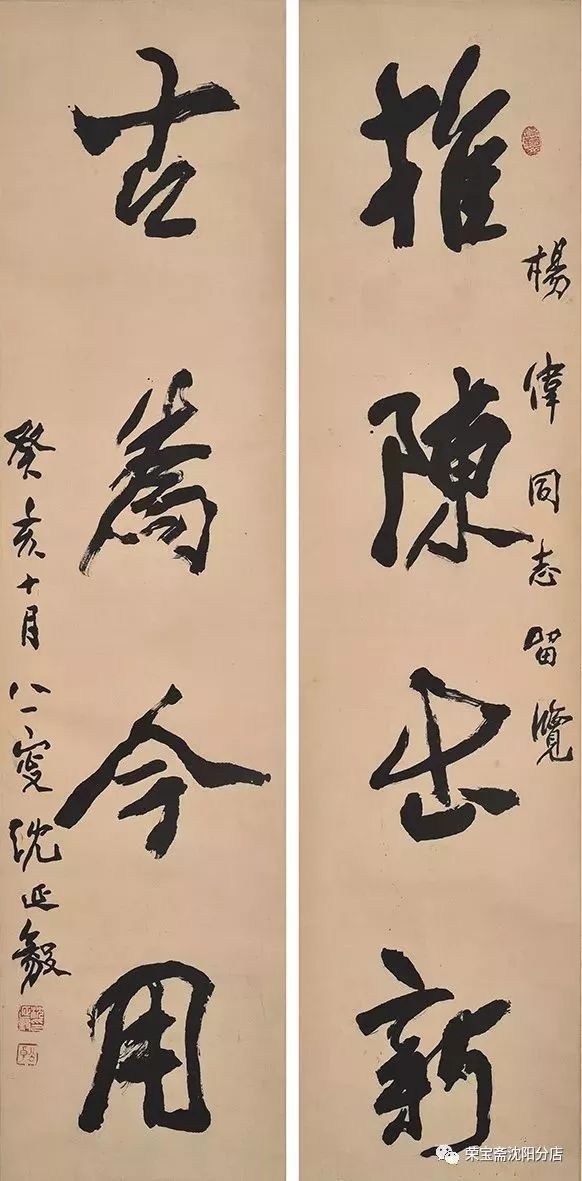 楊偉同志留覽
推陳出新
古為今用
癸亥十月八一叟沈延毅
荣宝斋沈阳分店